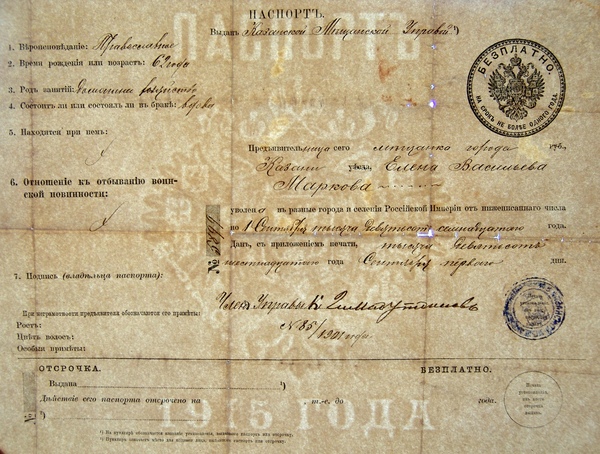 ПАСПОРТЪ.
Выданъ Казанской Мѣщанской Управой ¹)
1. Вѣроисповѣданіе: Православное
2. Время рожденія или возрастъ: 62 года
3. Родъ занятій: домашнее хозяйство
4. Состоитъ ли или состоялъ ли въ бракѣ: вдова
5. Находятся при немъ:
БЕЗПЛАТНО.
НА СРОКЪ НЕ БОЛѢЕ ОДНОГО ГОДА
Предъявительница сего мѣщанка города губ.,
Казани уѣзда, Елена Васильева
Маркова
6. Отношеніе къ отбыванію воин-
ской повинности:
уволена въ разные города и селенія Россійской Имперіи отъ нижеписаннаго числа
по 1 Сентября тысяча девятьсотъ семнадцатаго года.
Данъ, съ приложеніемъ печати, тысяча девятьсотъ
шестнадцатаго года Сентября перваго дня.
7. Подпись (владѣльца паспорта):
Членъ Управы
При неграмотности предъявителя обозначаются его примѣты:
Ростъ:
Цвѣтъ волосъ:
Особыя примѣты:
ОТСРОЧКА. БЕЗПЛАТНО.
Выдана ¹)
Дѣйствіе сего паспорта отсрочено на , т.-е. до года.